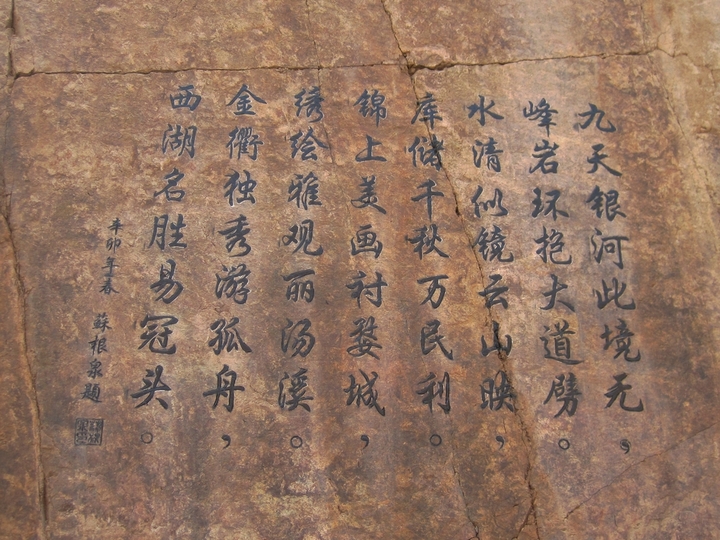 九天银河此境无，
峰岩环抱大道劈。
水清似镜云山映，
库储千秋万民利。
锦上美画衬婺城，
绣绘雅观丽汤溪。
金衢独秀游孤舟，
西湖名胜易冠头。
辛卯年春 蘇根泉题